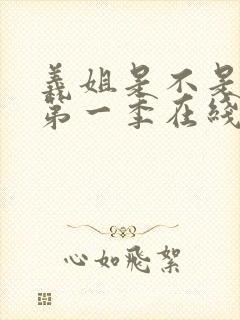 義姐是不是
第一季在綫
心如飛絮